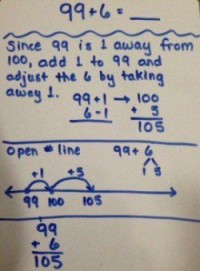 99+6 = ___
Since 99 is 1 away from
100, add 1 to 99 and
adjust the 6 by taking
away 1.
99+1 → 100
6-1 + 5
105
Open # line
99+6
1 5
+1 +5
99 100 105
99
+ 6
105